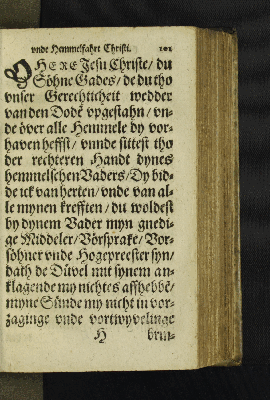 vnde Hemmelfahrt Christi. 101
O HERE Jesu Christe/ du
Söhne Gades/ de du tho
vnser Gerechticheit wedder
van den Dodē vpgestahn/ vn-
de över alle Hemmele dy vor-
haven heffst/ vnnde sittest tho
der rechteren Handt dynes
hemmelschen Vaders/ Dy bid-
de ick van herten/ vnde van al-
le mynen krefften/ du woldest
by dynem Vader myn gnedi-
ge Middeler/ Vörsprake/ Vor-
söhner vnde Hogepreester syn/
dath de Düvel mit synem an-
klagende my nichtes affhebbē/
myne Sünde my nicht in vor-
zaginge vnde vortwyvelinge
H brin-